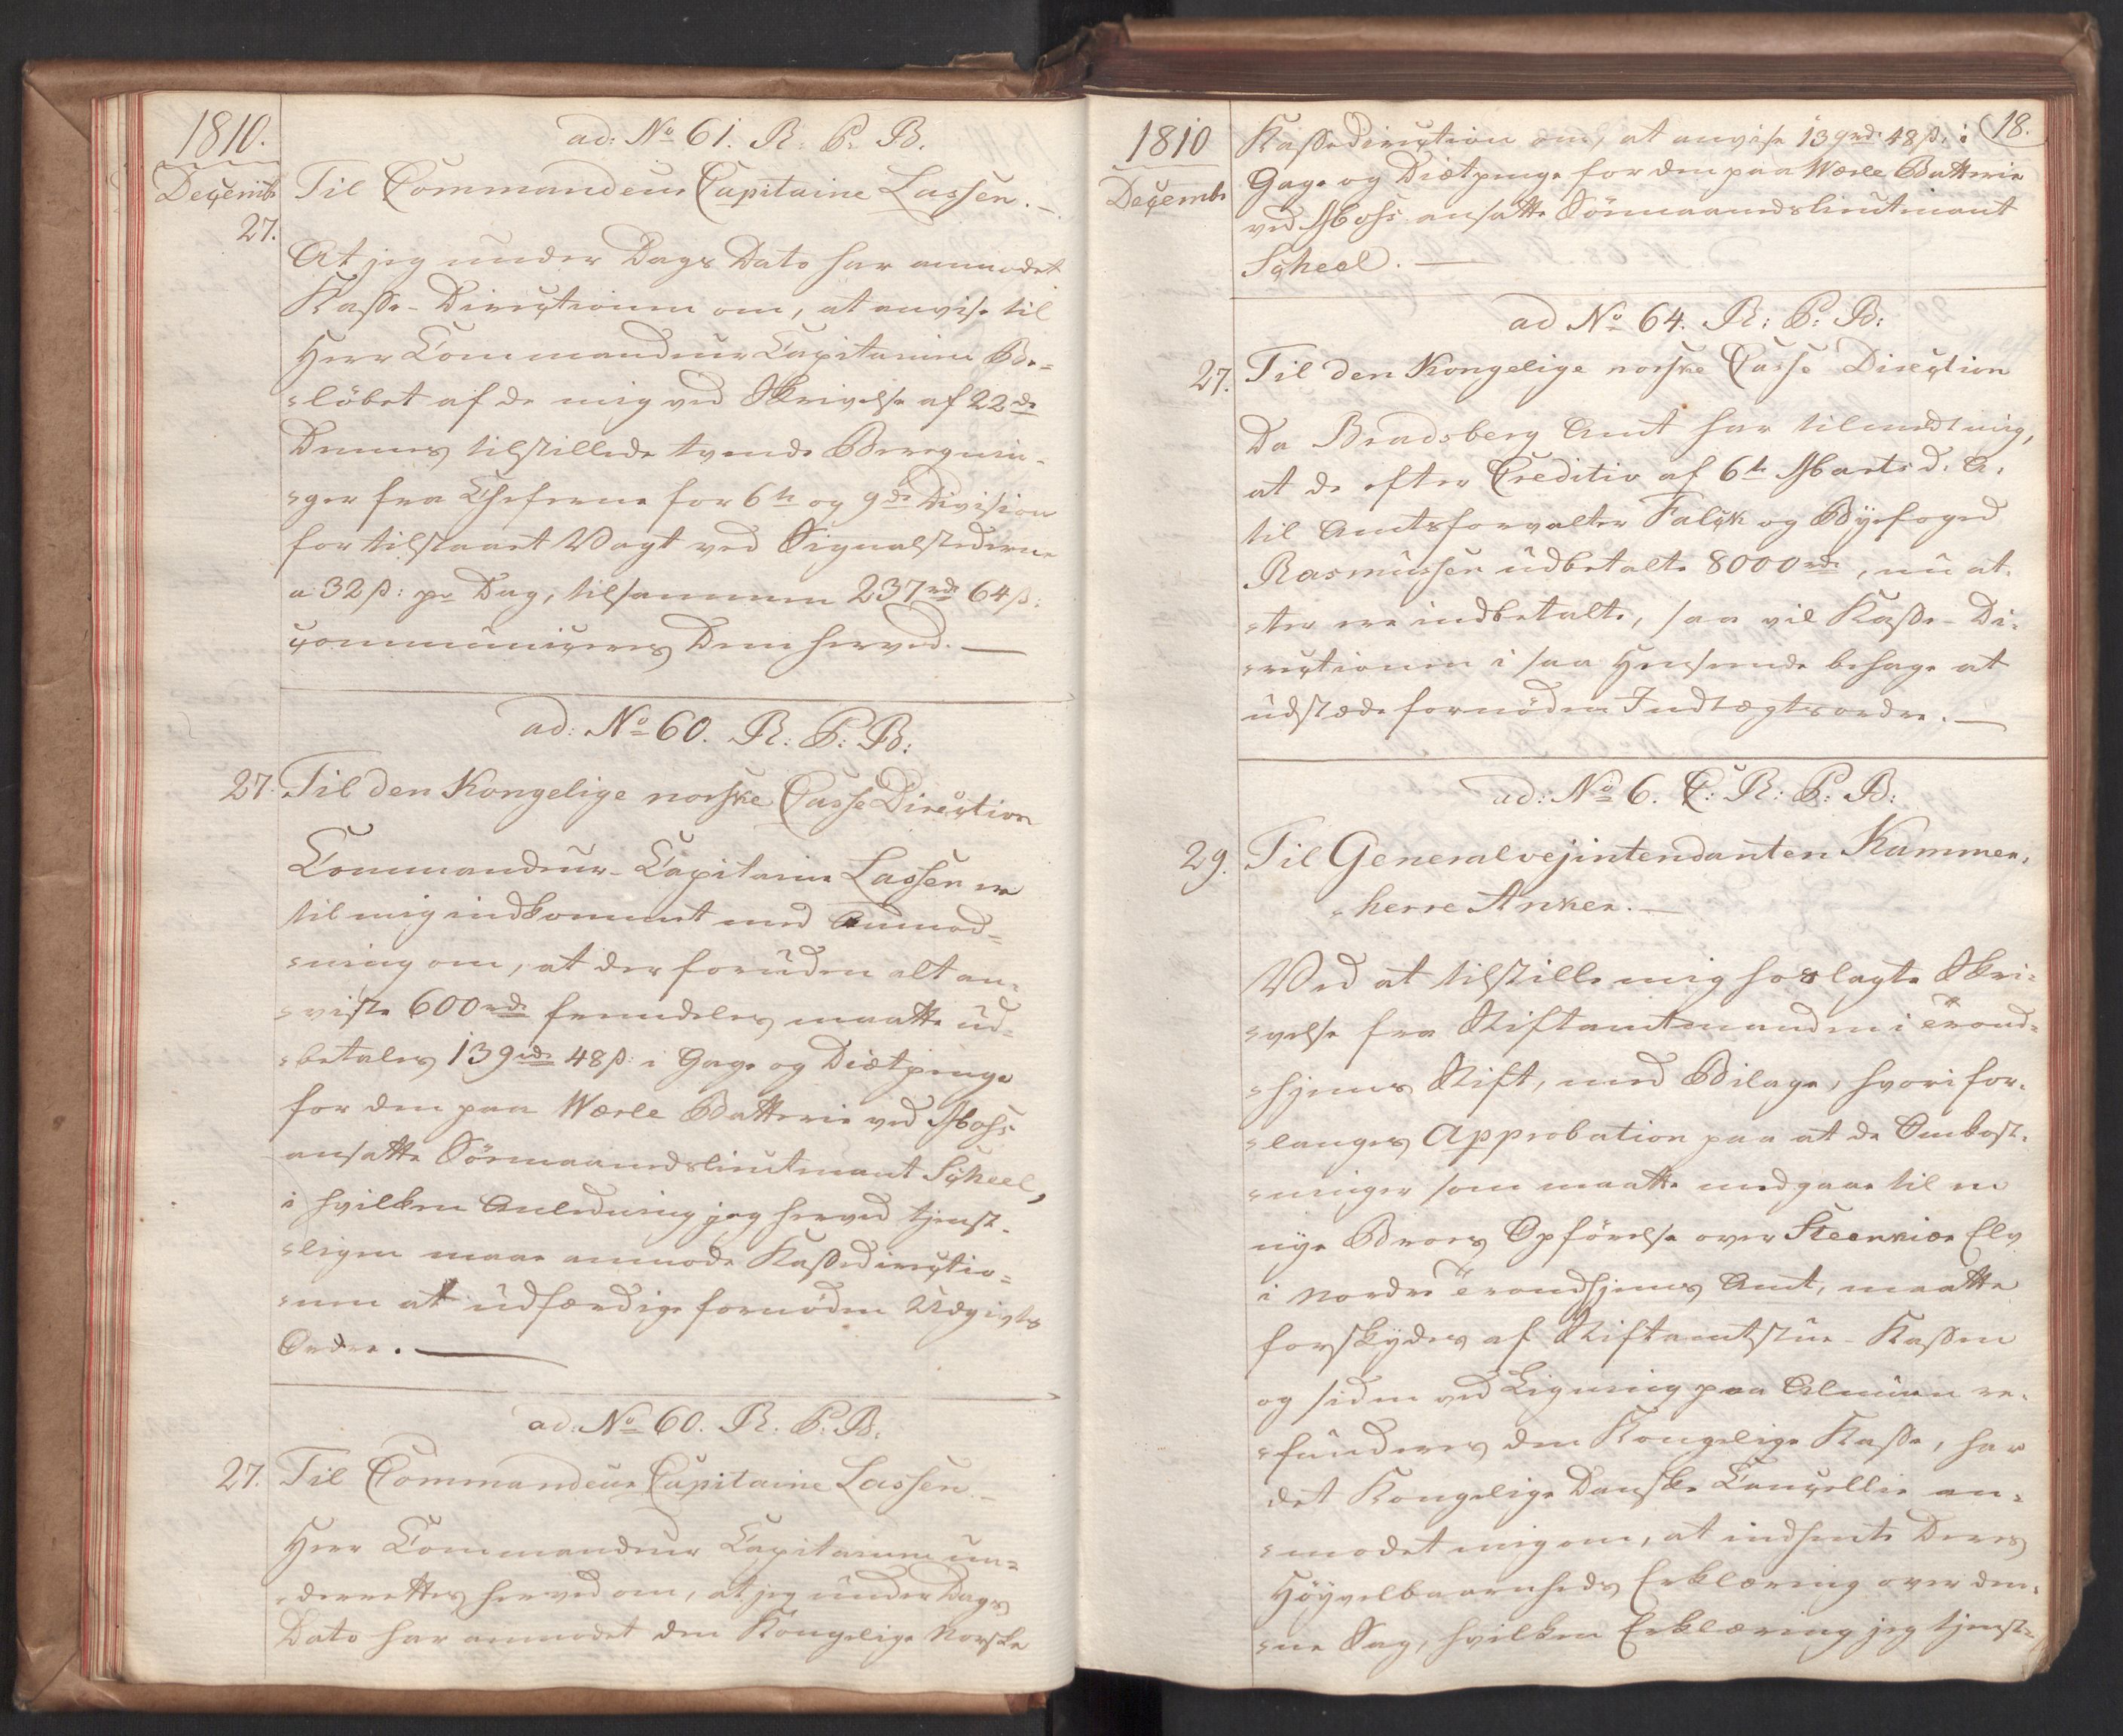 1810.
Decembr
ad: No 61. R: P: B.
Til Commandeur Capitaine Lassen.
27.
At jeg under Dags Dato har anmodet
Kasse-Directionen om, at anvise til
Herr Commandeur Capitainen Be=
=löbet af de mig ved Skrivelse af 22de
Dennes tilstillede tvende Beregnin-
=ger fra Cheferne for 6te og 9de Division
for tilstaaet Vagt ved Signalstederne
a 32 ß: pr Dag, tilsammen 237 rd 64 ß:
communiceres Dem herved. —
ad: No 60. R: P: B:
27. Til den Kongelige norske Casse Direction
Commandeur-Capitaine Lassen er
til mig indkommet med Anmod=
=ning om, at der foruden alt an-
=viste 600 rd fremdeles maatte ud=
=betales 139 rd 48 ß: i Gage og Diætpenge
for den paa Wærle Batterie ved Moss
ansatte Sönmaanedslieutenant Scheel,
i hvilken Anledning jeg herved tjenst-
=ligen maae anmode Kassedirectio=
=nen at udfærdige fornøden Udgivts
Ordre. —
ad: No 60. R: P: B.
27. Til Commandeur Capitaine Lassen. —
Herr Commandeur Capitainen un=
=derrettes herved om, at jeg under Dags
Dato har anmodet den Kongelige Norske
18.
1810
Decembr
Kassedirection om, at anvise 139 rd 48 ß: i
Gage og Diætpenge for den paa Wærle Batterie
ved Moss ansatte Sönmaanedslieutenant
Scheel. —
ad No 64. R: P: B:
27. Til den Kongelige norske Casse Direction
Da Bradsberg Amt har tilmeldt mig,
at de efter Creditiv af 6te Marts d. A.
til Amtsforvalter Falck og Byefoged
Rasmussen udbetalte 8000 rd, nu at-
=ter ere indbetalte, saa vil Kasse-Di-
=rectionen i saa Henseende behage at
udstæde fornöden Indtægtsordre. —
ad: No 6. C: R: P: B:
29. Til Generalvejintendanten Kammer-
=herre Anker. —
Ved at tilstille mig hoslagte Skri-
=velse fra Stiftamtmanden i Trond-
=hjems Stift, med Bilage, hvori for-
=langes Approbation paa at de Omkost-
=ninger som maatte medgaae til en
nye Broes Opförelse over Steenkiær Elv
i Nordre Trondhjems Amt, maatte
forskydes af Stiftamtstue-Kassen
og siden ved Ligning paa Almuen re-
=funderes den Kongelige Kasse, har
det Kongelige Danske Cancellie an-
=modet mig om, at indhente Deres
Höyvelbaarenheds Erklæring over den-
=ne Sag, hvilken Erklæring jeg tjenst=